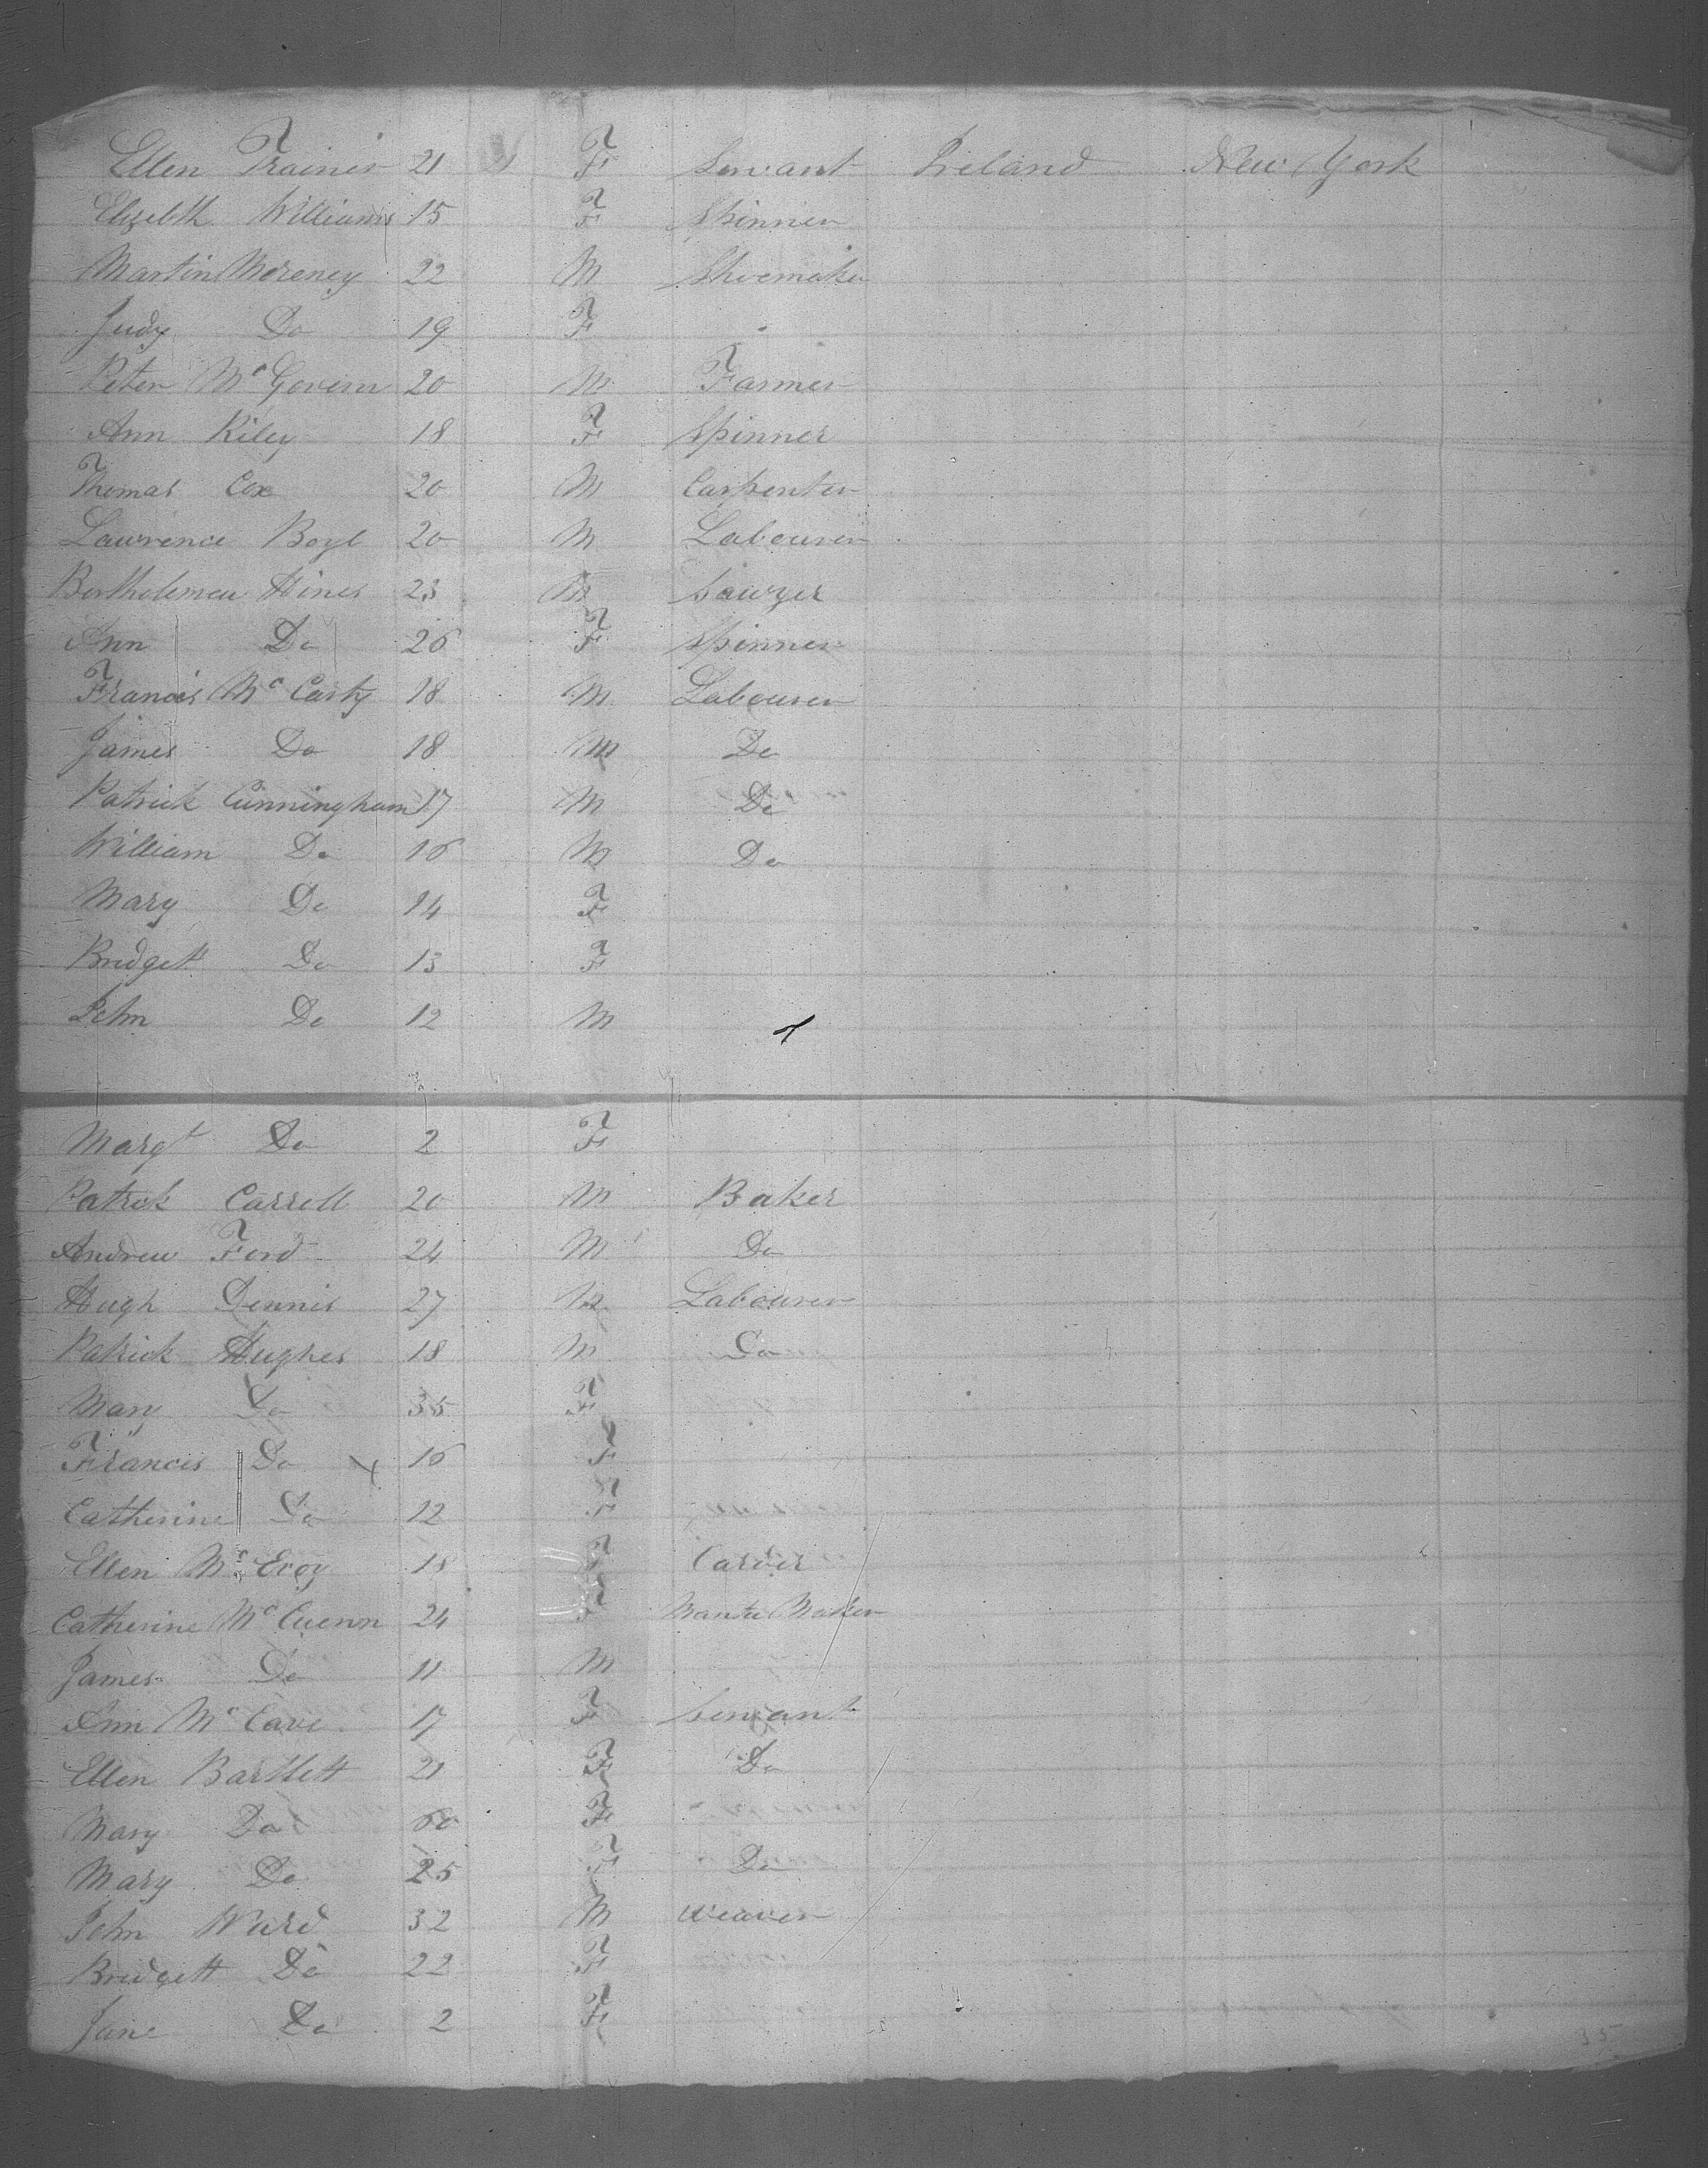 Ellen Trainer 21 F Servant Ireland New York
Elizebth Williams 15 F Spinner
Martin Moreney 22 M Shoemaker
Judy Do 19 F
Peter Mc Govern 20 M Farmer
Ann Riley 18 F Spinner
Thomas Cox 20 M Carpenter
Lawrence Boyl 20 M Labourer
Bartholemew Hines 23 M Sawyer
Ann Do 26 F Spinner
Francis Mc Carty 18 M Labourer
James Do 18 M Do
Patrick Cunningham 17 M Do
William Do 16 M Do
Mary Do 14 F
Bridgett Do 13 F
John Do 12 M
Margt Do 2 F
Patrick Carroll 20 M Baker
Andrew Ford 24 M Do
Hugh Dennis 27 M Labourer
Patrick Hughes 18 M Do
Mary Do 35 F
Francis Do 16 F
Catherine Do 12 F
Ellen Mc Evoy 18 F Carder
Catherine Mc 24 F Mantu Maker
James Do 11 M
Ann Mc Cave 17 F Servant
Ellen Bartlett 21 F Do
Mary Do 60 F
Mary Do 25 F Do
John Ward 32 M Weaver
Bridgett Do 22 F
Jane Do 2 F
35